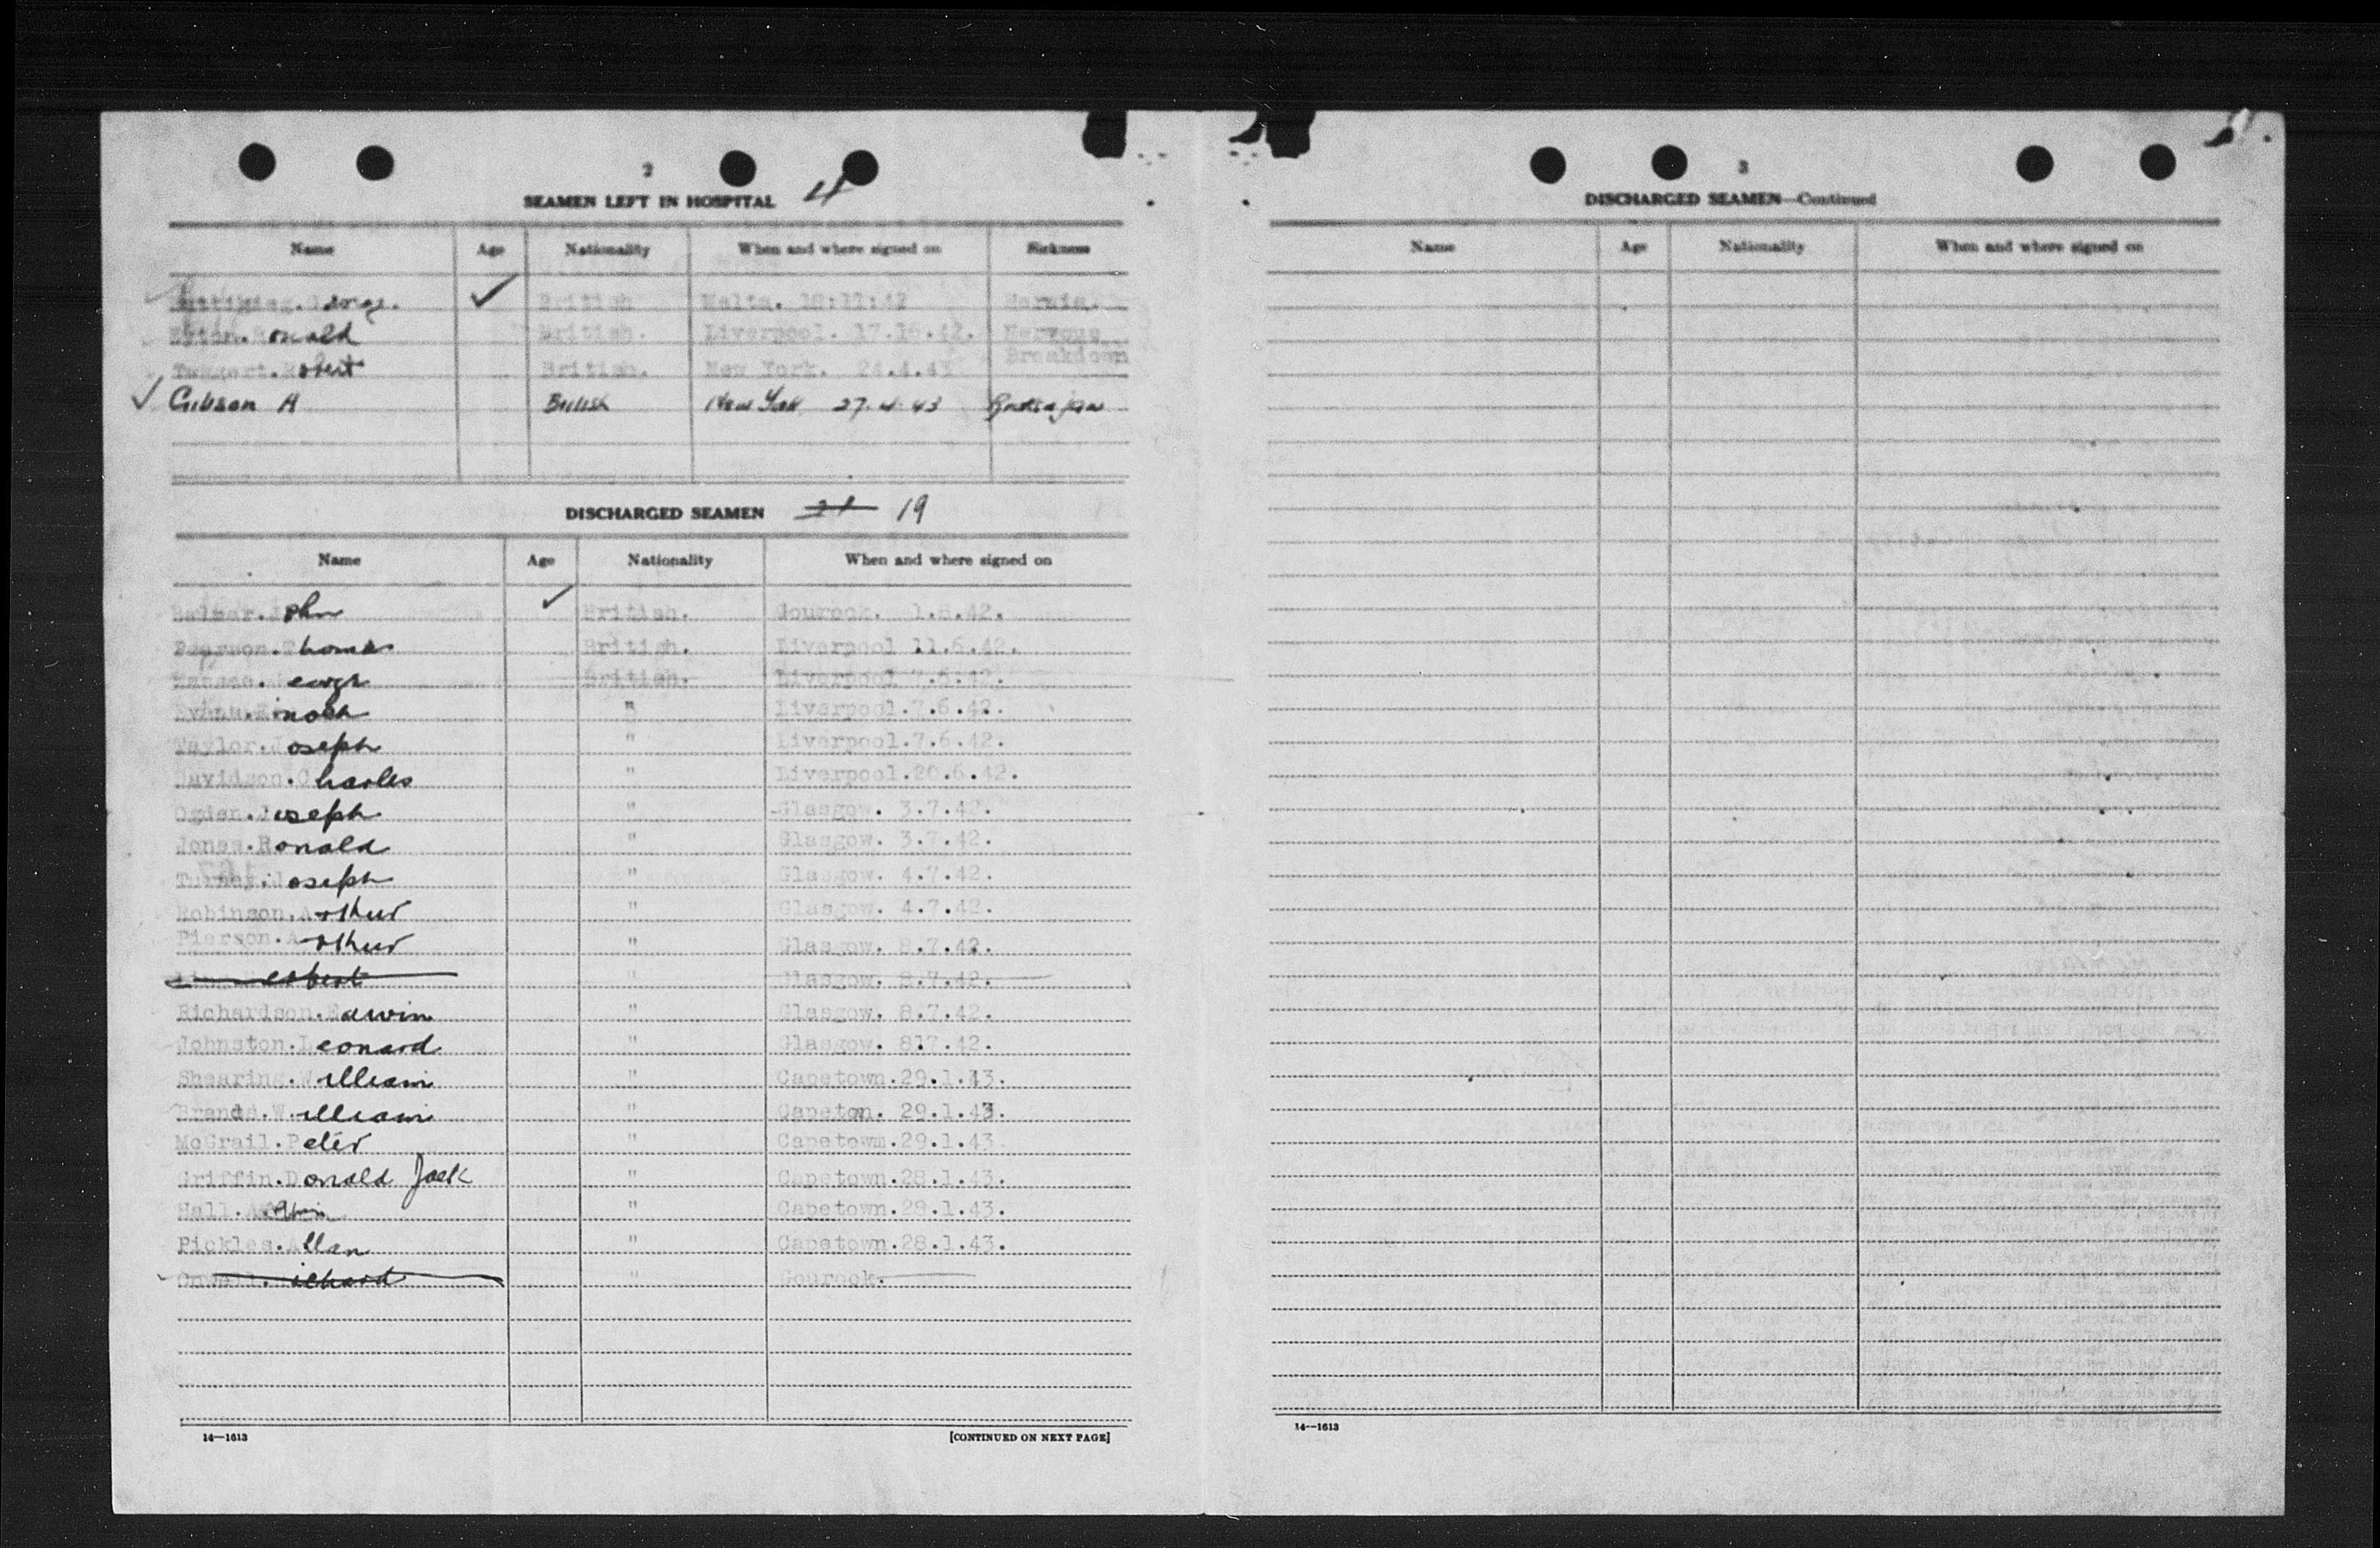 2
SEAMEN LEFT IN HOSPITAL 4
Name Age Nationality When and where signed on Sickness
George. British Malta. 18:11:42 Hernia.
Ronald British. Liverpool. 17.10.42. Nervous
Breakdown
Robert British. New York. 24.4.43
Gibson H British New York 27.4.43
DISCHARGED SEAMEN 21 19
Name Age Nationality When and where signed on
John British. Gourock. 1.6.42.
Pearson. Thomas British. Liverpool 11.6.42.
George British. Liverpool 7.6.42.
Evans. Enoch " Liverpool.7.6.42.
Taylor. Joseph " Liverpool.7.6.42.
Davidson. Charles " Liverpool.20.6.42.
Ogden. Joseph " Glasgow. 3.7.42.
Jones. Ronald " Glasgow. 3.7.42.
Joseph " Glasgow. 4.7.42.
Robinson. Arthur " Glasgow. 4.7.42.
Pierson. Arthur " Glasgow. 8.7.42.
" Glasgow. 8.7.42.
Richardson. Edwin " Glasgow. 8.7.42.
Johnston. Leonard " Glasgow. 817.42.
Shearing. William " Capetown.29.1.43.
William " Capeton. 29.1.43.
McGrail. Peter " Capetown.29.1.43.
Griffin. Donald Jack " Capetown.28.1.43.
Hall. " Capetown.28.1.43.
Pickles. Allan " Capetown.28.1.43.
Richard " Gourock.
14—1613 [CONTINUED ON NEXT PAGE]
3
DISCHARGED SEAMEN—Continued
Name Age Nationality When and where signed on
14—1613